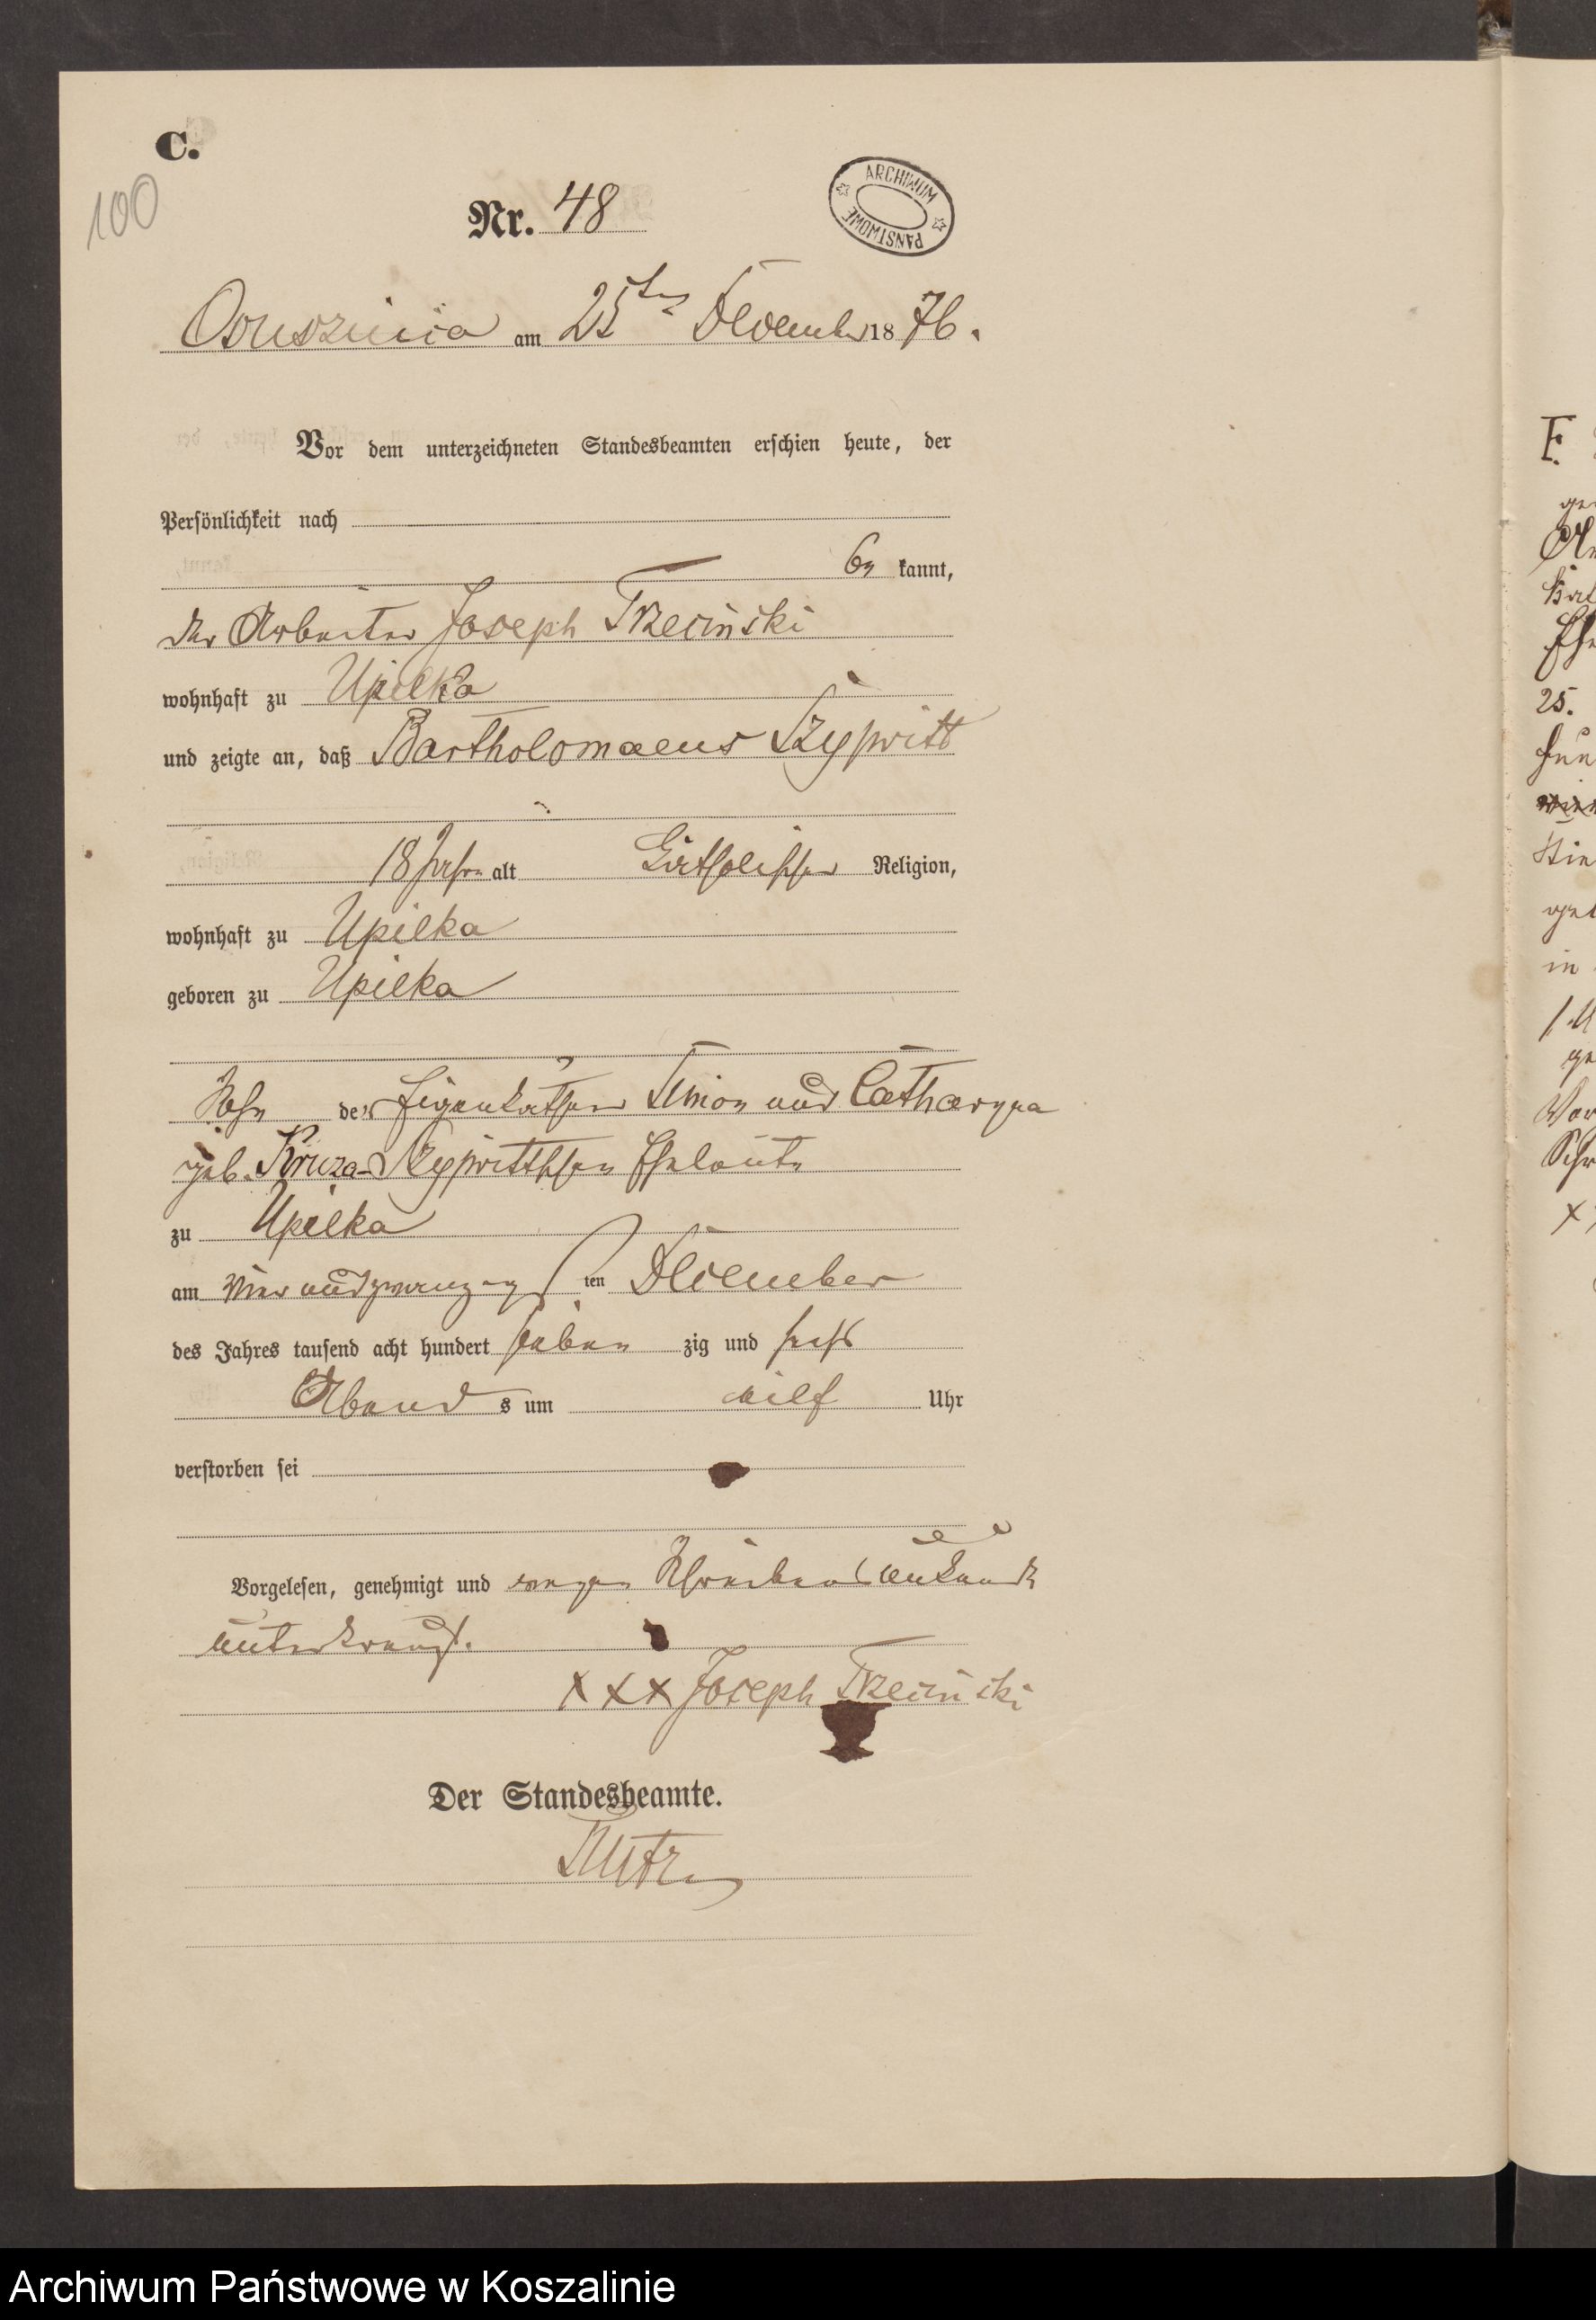 C.
100
Nr. 48
ARCHIWUM PAŃSTWOWE
am 25ten December 1876.
Vor dem unterzeichneten Standesbeamten erschien heute, der
Persönlichkeit nach
be kannt,
der Arbeiter Joseph Trzecinski
wohnhaft zu Upilka
und zeigte an, daß Bartholomaeus Szypritt
18 Jahre alt katholischer Religion,
wohnhaft zu Upilka
geboren zu Upilka
Sohn der Eigenkäthner Simon und Catharyna
geb. Kruza-Szyprittschen Eheleute
zu Upilka
am vier und zwanzigs ten December
des Jahres tausend acht hundert sieben zig und sechs
Abend s um eilf Uhr
verstorben sei
Vorgelesen, genehmigt und wegen Schreibensunkunde
unterkreuzt.
XXX Joseph Trzecinski
Der Standesbeamte.
F.
25.
in
Archiwum Państwowe w Koszalinie